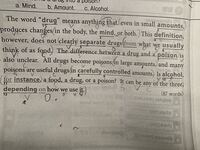 a. Mind. b. Amount. c. Alcohol.
The word "drug" means anything that even in small amounts,
produces changes in the body, the mind, or both. This definition,
however, does not clearly separate drugs from what we usually
think of as food. The difference between a drug and a poison is
also unclear. All drugs become poisons in large amounts, and many
poisons are useful drugs in carefully controlled amounts. Is alcohol,
for instance, a food, a drug, or a poison? It can be any of the three,
depending on how we use it.
(87 words)